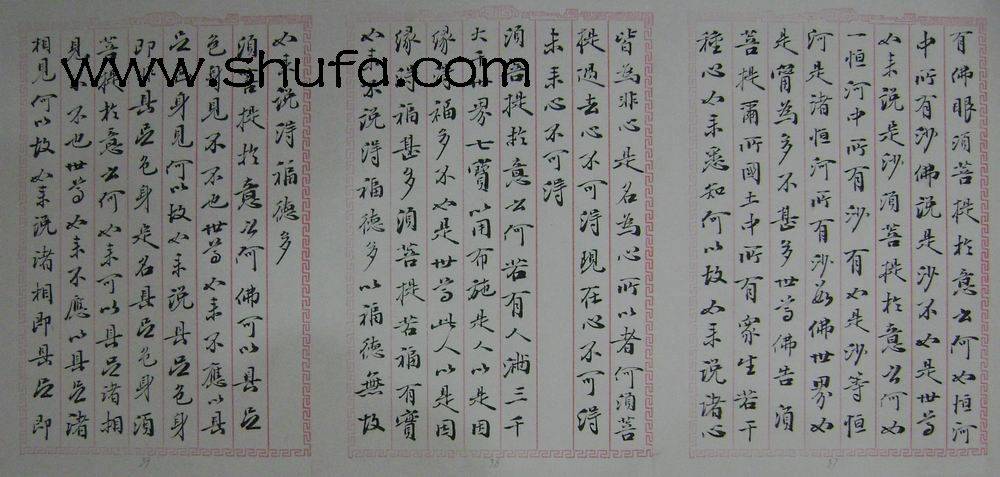 有佛眼須菩提於意云何如恒河
中所有沙佛說是沙不如是世尊
如来說是沙須菩提於意云何如
一恒河中所有沙有如是沙等恒
河是诸恒河所有沙數佛世界如
是甯為多不甚多世尊佛告須
菩提爾所國土中所有眾生若干
種心如来悉知何以故如来說诸心
37
皆為非心是名為心所以者何須菩
提過去心不可得現在心不可得
未来心不可得
須菩提於意云何若有人滿三千
大千世界七寶以用布施是人以是因
緣得福多不如是世尊此人以是因
緣得福甚多須菩提若福有實
如来說得福德多以福德無故
38
如来說得福德多
須菩提於意云何佛可以具足
色身見不不也世尊如来不應以具
足色身見何以故如来說具足色身
即具足色身是名具足色身須
菩提於意云何如来可以具足诸相
見不不也世尊如来不應以具足诸
相見何以故如来說诸相即具足即
39
www.shufa.com